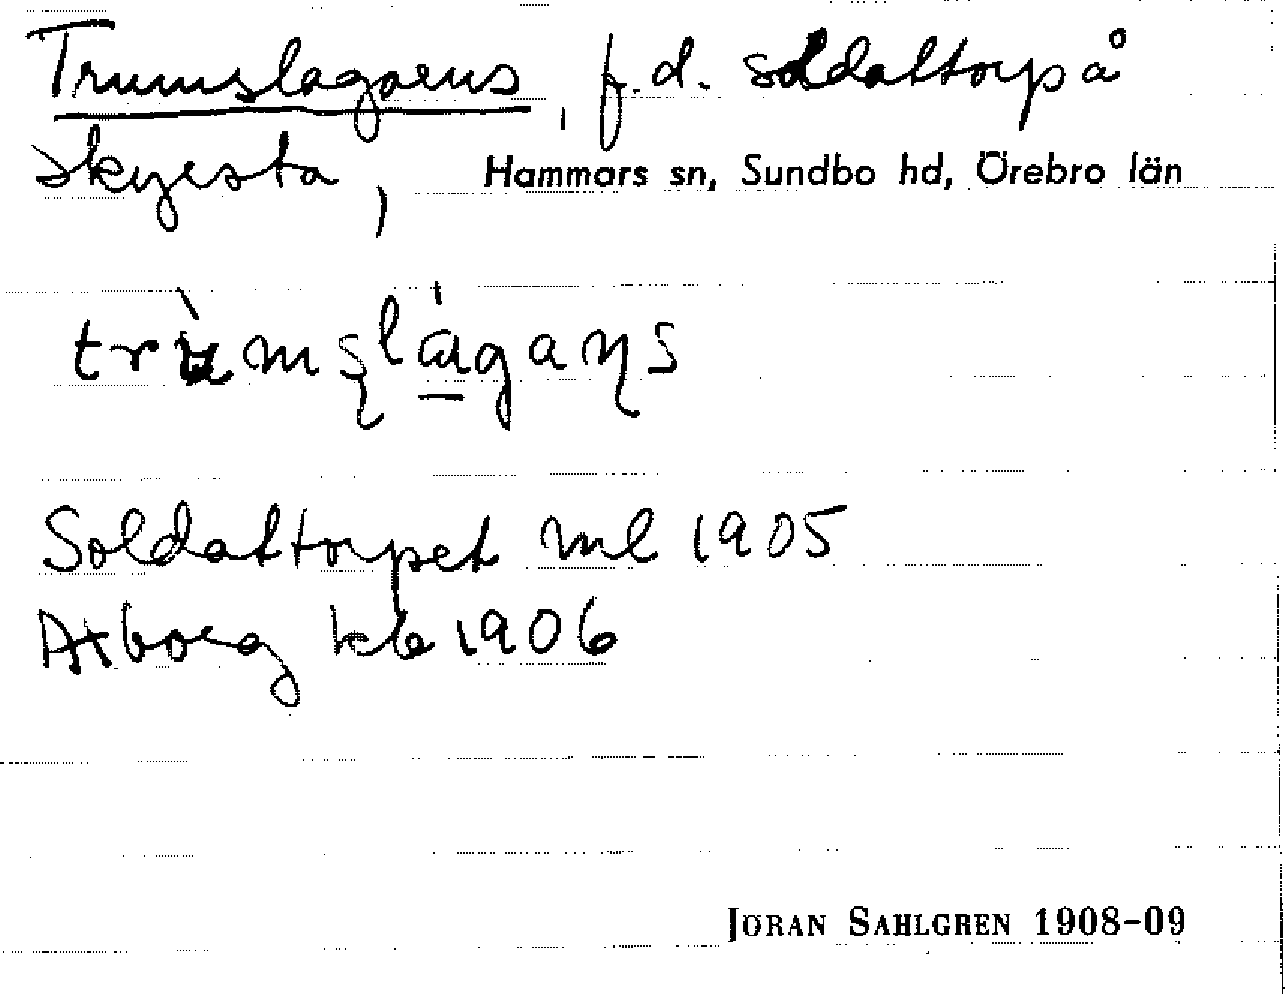 Trumslagarens, f.d. soldattorp å
Skyrsta, Hammars sn, Sundbo hd, Örebro län
Soldattorpet ml 1905
Axborg kb 1906
JÖRAN SAHLGREN 1908–09